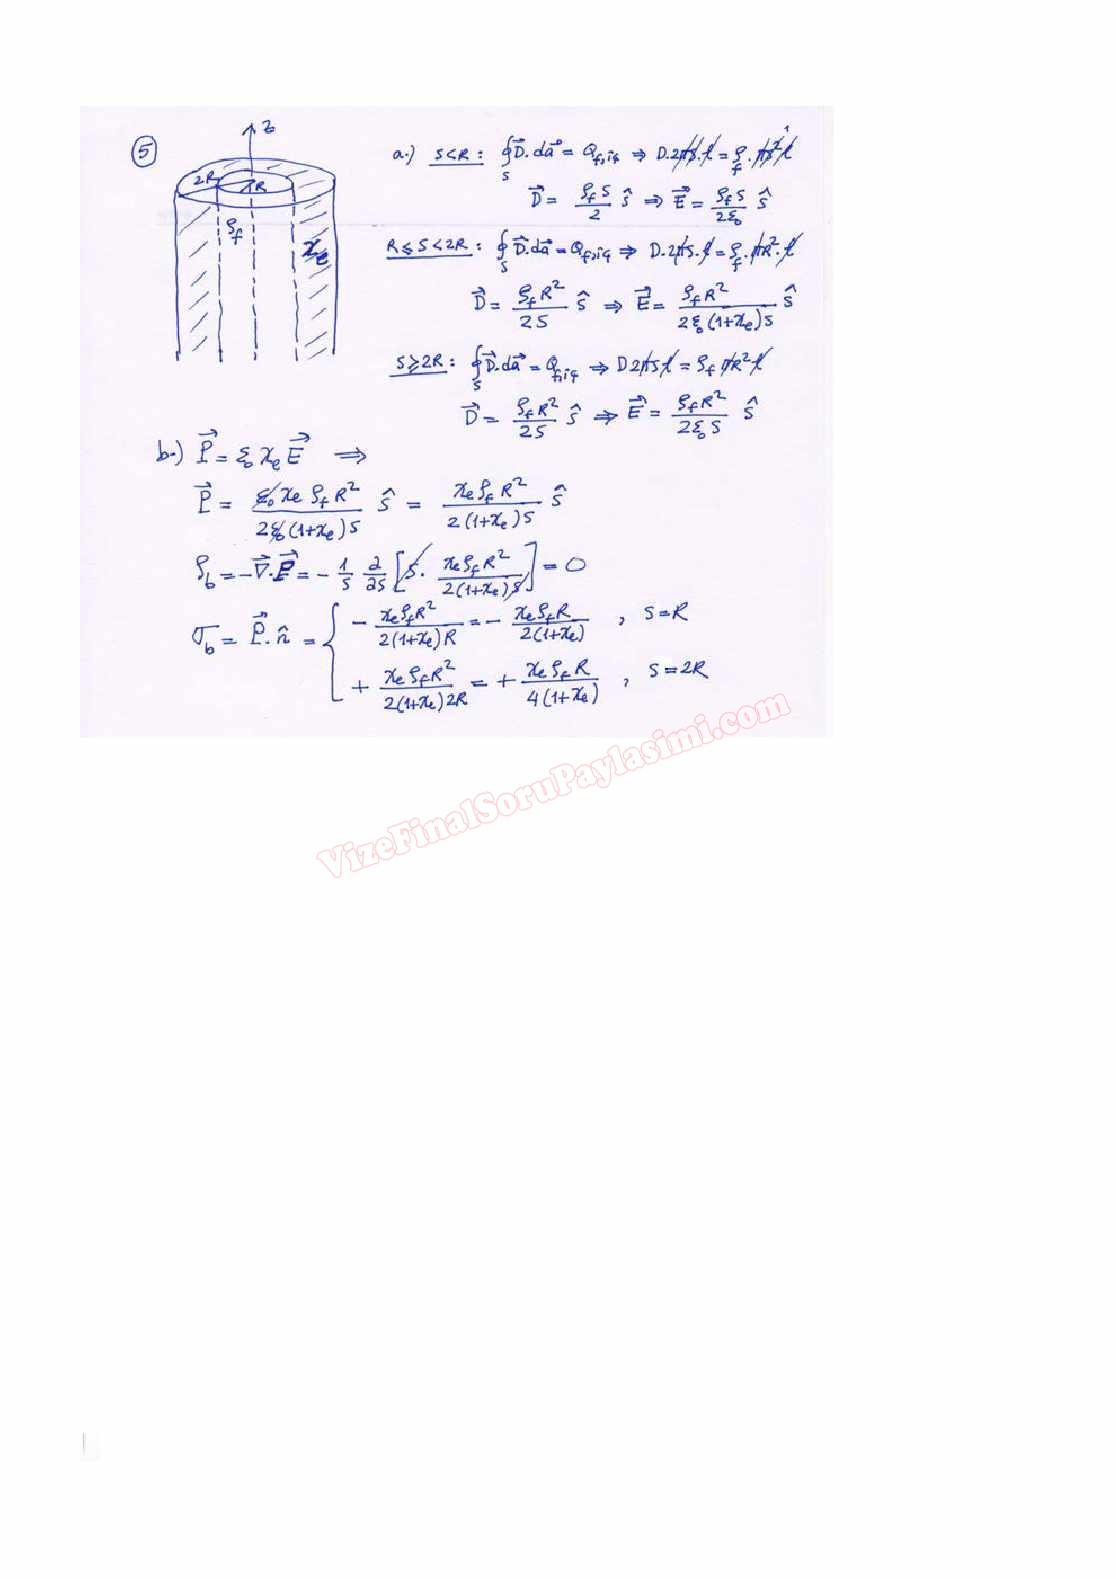 5
z
2R
R
ρf
χe
a.) s<R: ∮S D⃗.da⃗ = Qf,iç ⇒ D.2πs.l = ρf.πs².l
D⃗ = ρf s / 2 ŝ ⇒ E⃗ = ρf s / 2ε₀ ŝ
R ≤ s < 2R: ∮S D⃗.da⃗ = Qf,iç ⇒ D.2πs.l = ρf.πR².l
D⃗ = ρf R² / 2s ŝ ⇒ E⃗ = ρf R² / 2ε₀(1+χe)s ŝ
s ≥ 2R: ∮S D⃗.da⃗ = Qf,iç ⇒ D2πsl = ρf πR²l
D⃗ = ρf R² / 2s ŝ ⇒ E⃗ = ρf R² / 2ε₀ s ŝ
b.) P⃗ = ε₀ χe E⃗ ⇒
P⃗ = ε₀ χe ρf R² / 2ε₀(1+χe)s ŝ = χe ρf R² / 2(1+χe)s ŝ
ρb = -∇⃗.P⃗ = - 1/s ∂/∂s [s. χe ρf R² / 2(1+χe)s] = 0
σb = P⃗.n̂ = { - χe ρf R² / 2(1+χe)R = - χe ρf R / 2(1+χe) , s=R
+ χe ρf R² / 2(1+χe)2R = + χe ρf R / 4(1+χe) , s=2R
VizeFinalSoruPaylasimi.com